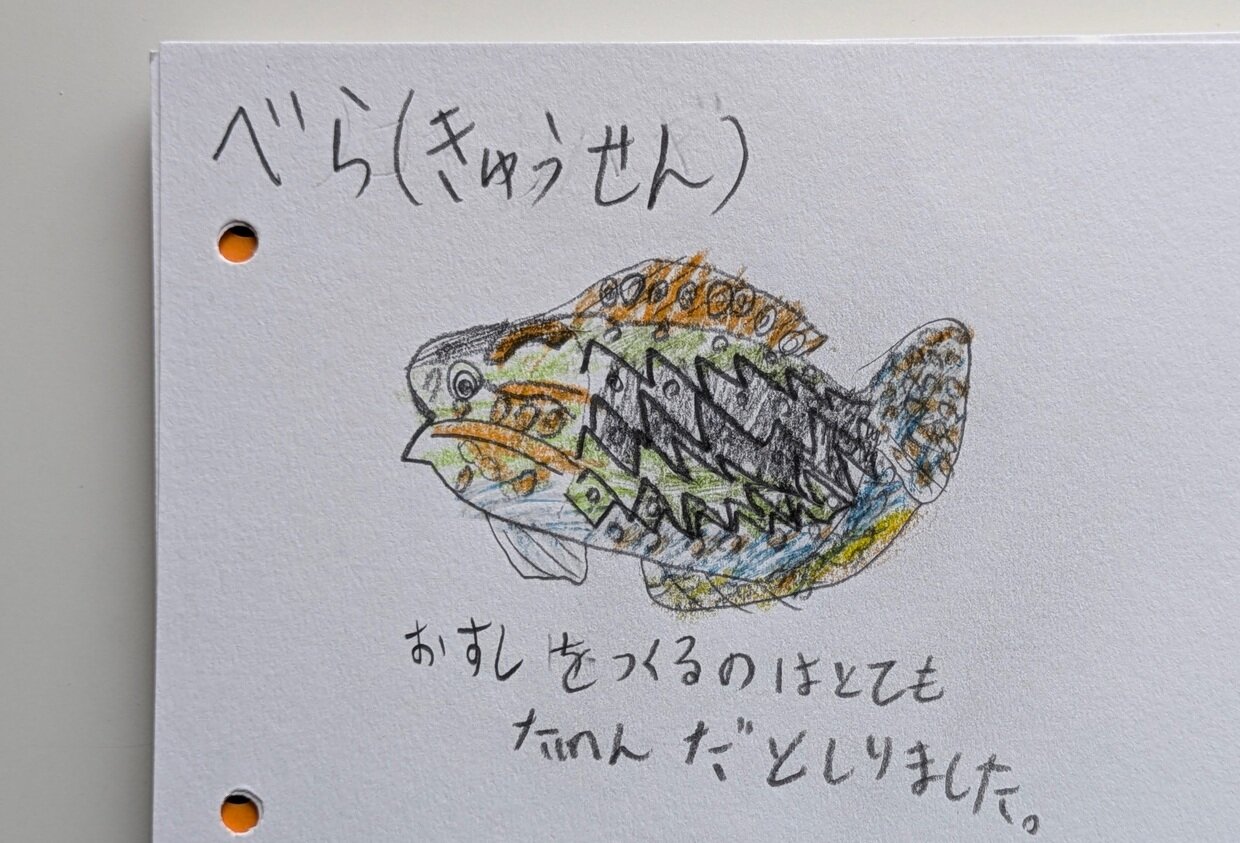 べら(きゅうせん)
おすしをつくるのはとても
たいへんだとしりました。